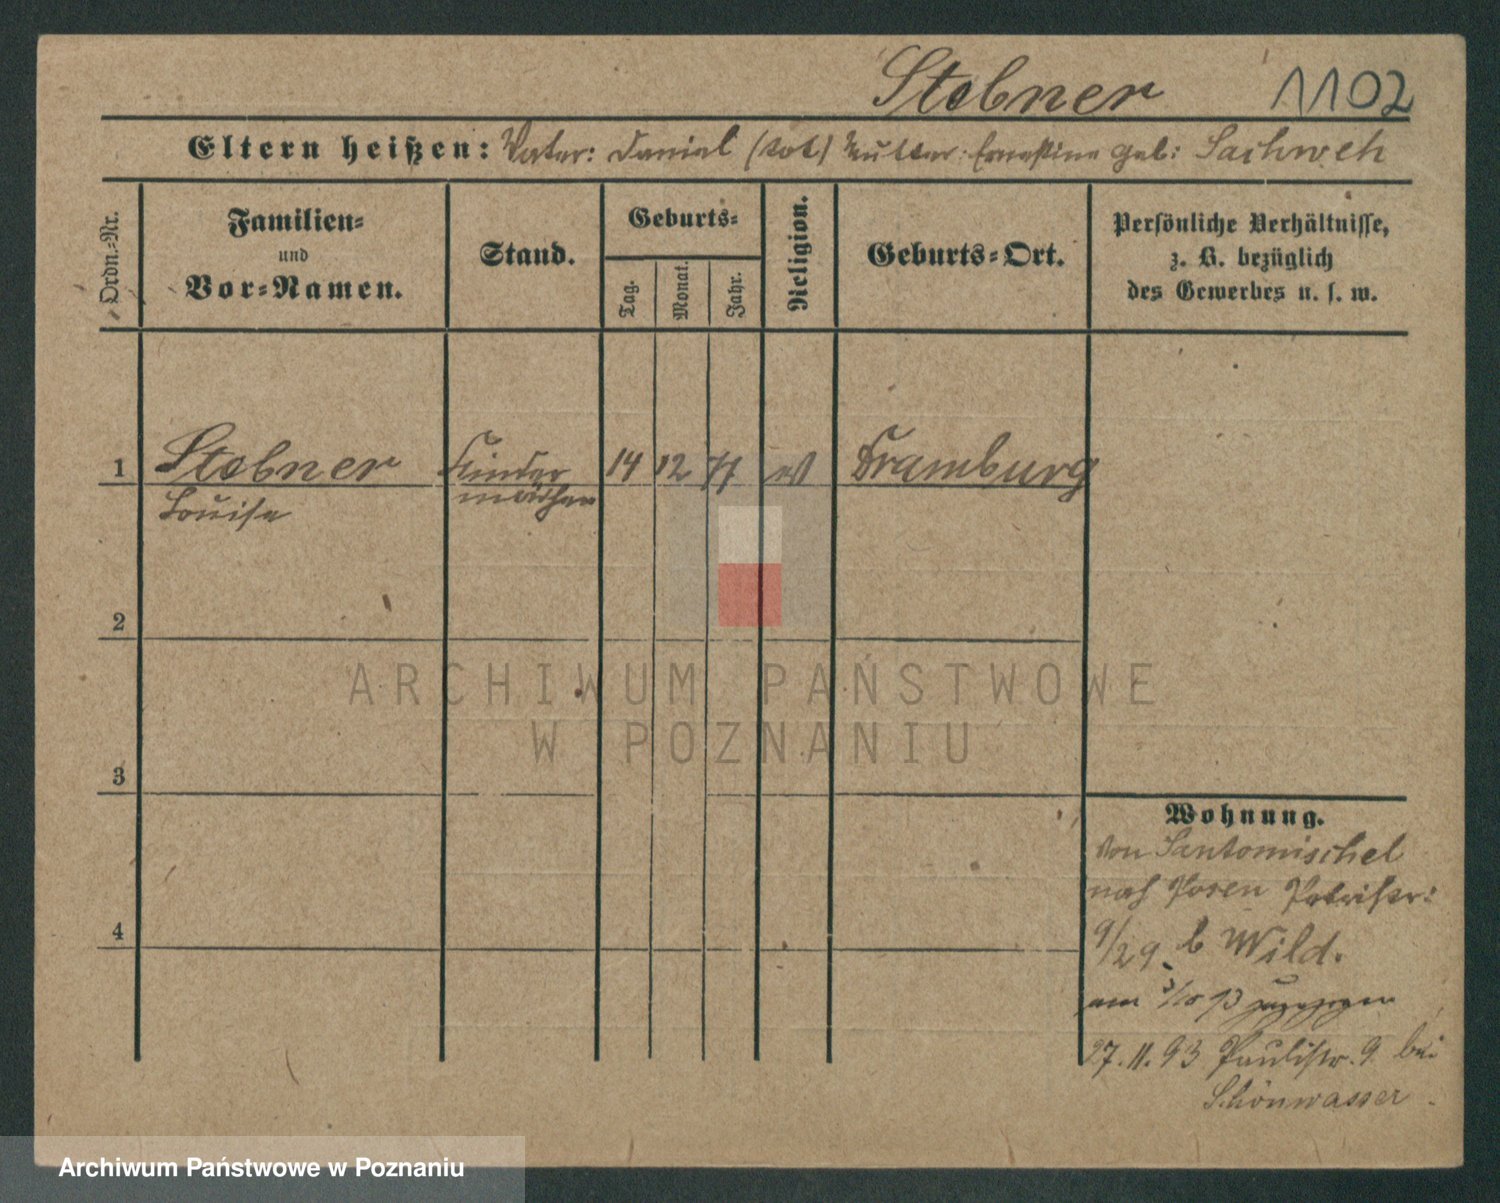 Stebner 1102
Eltern heißen: Vater: Daniel (tot) Mutter: Ernestine geb: Sachweh
Ordn.-Nr.
Familien-
und
Vor-Namen.
Stand.
Geburts-
Tag.
Monat.
Jahr.
Religion.
Geburts-Ort.
Persönliche Verhältnisse,
z. B. bezüglich
des Gewerbes u. s. w.
1 Stebner Kinder 14 12 77 ev Dramburg
Louise mädchen
2
ARCHIWUM PAŃSTWOWE
W POZNANIU
3
Wohnung.
von Santomischel
nach Posen Petristr:
9/29. b Wild.
am 3/10 93 zugezogen
4
27.11.93 Paulistr. 9 bei
Schönwasser.
Archiwum Państwowe w Poznaniu